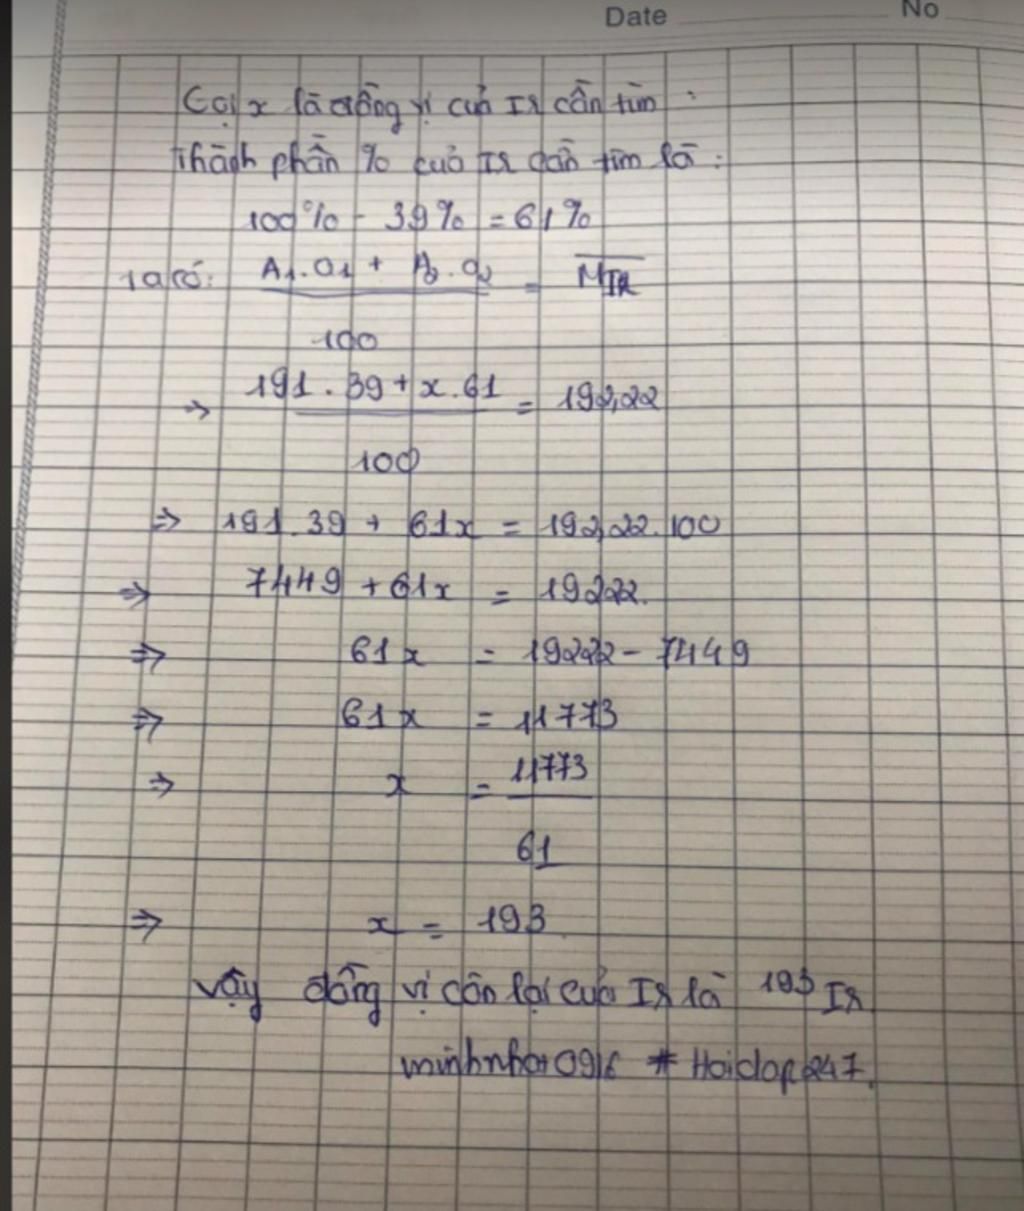 Date No
Gọi x là đồng vị của Ir cần tìm :
Thành phần % của Ir cần tìm là :
100% - 39% = 61%
Ta có: A1.a1 + A2.a2 / 100 = M̅Ir
⇒ 191.39 + x.61 / 100 = 192,22
⇒ 191.39 + 61x = 192,22.100
⇒ 7449 + 61x = 19222.
⇒ 61x = 19222 - 7449
⇒ 61x = 11773
⇒ x = 11773 / 61
⇒ x = 193
Vậy đồng vị còn lại của Ir là ¹⁹³Ir
minhnhat0916 # Hoidap247.